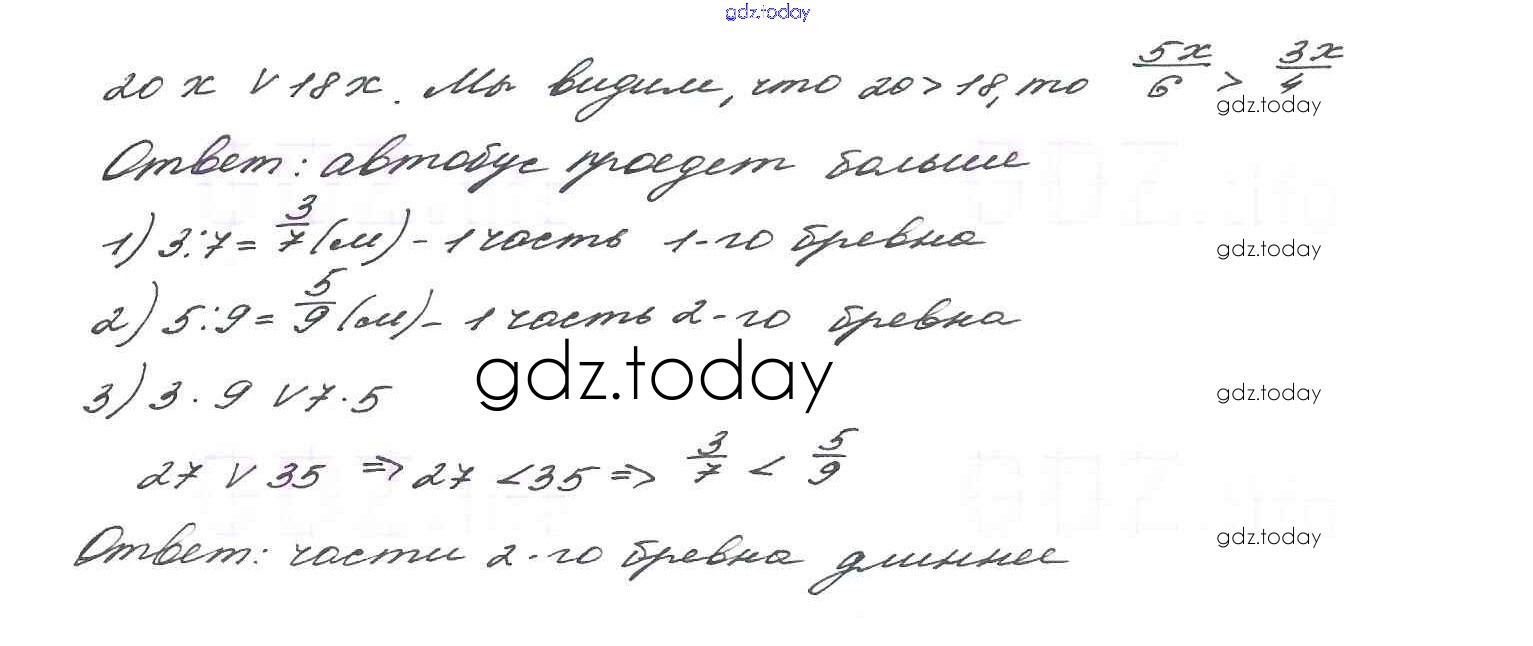 gdz.today
20x ∨ 18x. Мы видим, что 20 > 18, то 5x/6 > 3x/4
gdz.today
Ответ: автобус проедет больше
1) 3:7 = 3/7 (м) - 1 часть 1-го бревна
gdz.today
2) 5:9 = 5/9 (м) - 1 часть 2-го бревна
gdz.today
3) 3 · 9 ∨ 7 · 5
gdz.today
27 ∨ 35 => 27 < 35 => 3/7 < 5/9
Ответ: части 2-го бревна длиннее
gdz.today